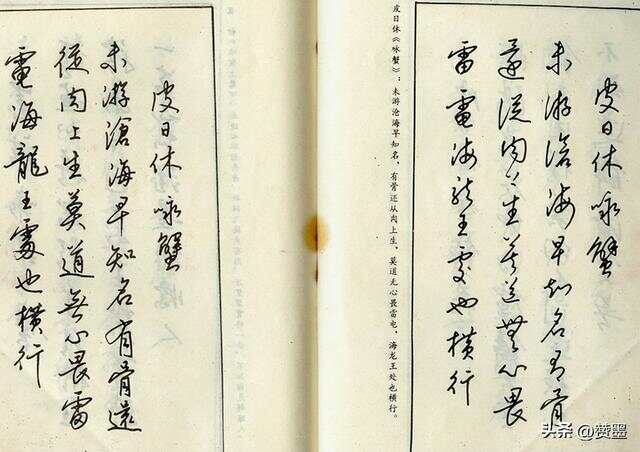 皮日休咏蟹
未游滄海早知名有骨
還從肉上生莫道無心畏
雷電海龍王處也橫行
皮日休《咏蟹》:未游沧海早知名,有骨还从肉上生。莫道无心畏雷电,海龙王处也横行。
皮日休咏蟹
未游滄海早知名有骨還
從肉上生莫道無心畏雷
電海龍王處也橫行
头条 @赞墨